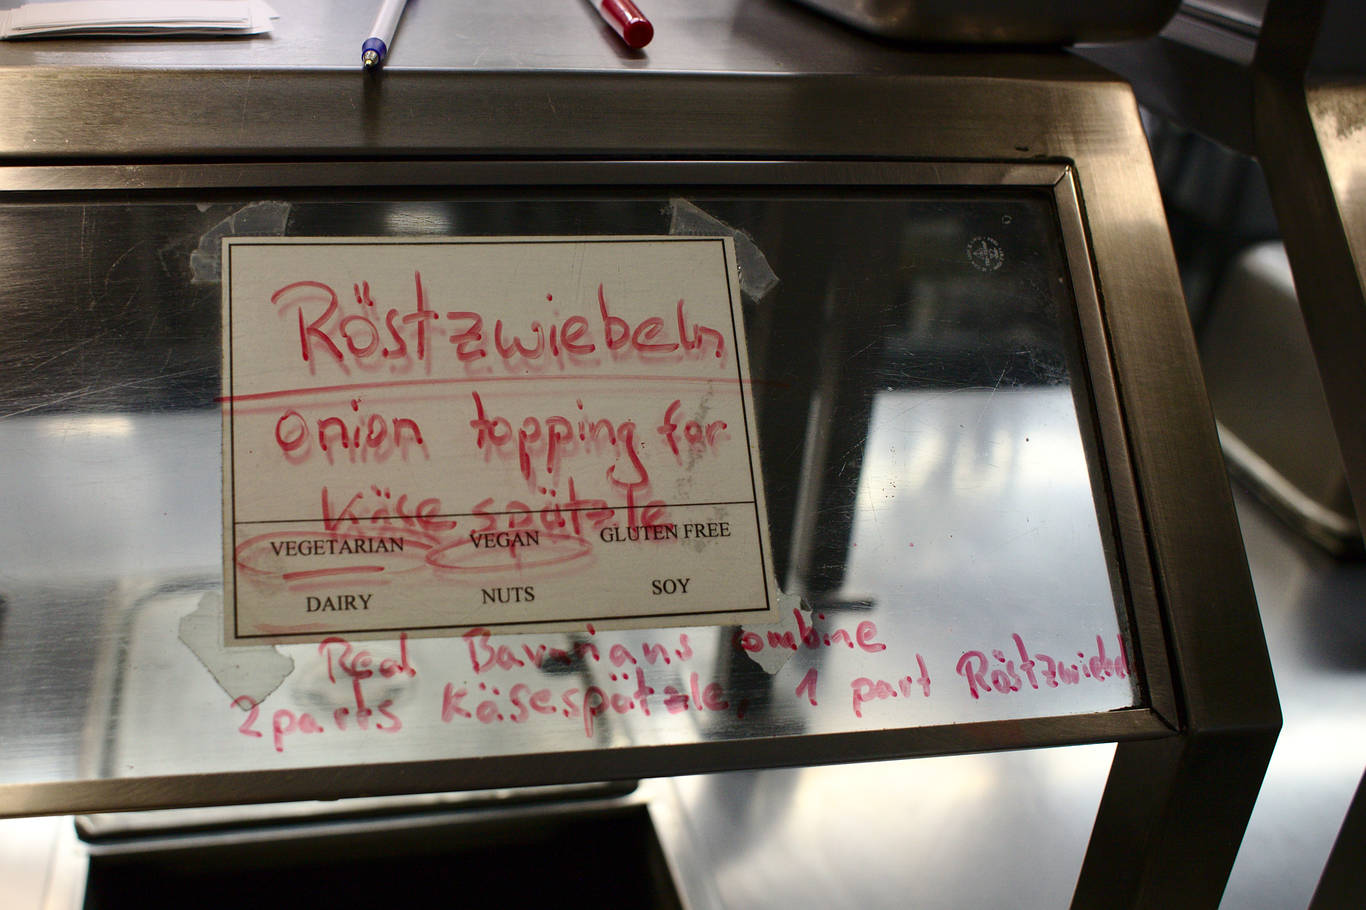 Röstzwiebeln
onion topping for
Käse spätzle
VEGETARIAN VEGAN GLUTEN FREE
DAIRY NUTS SOY
Real Bavarians combine
2 parts Käsespätzle, 1 part Röstzwiebel